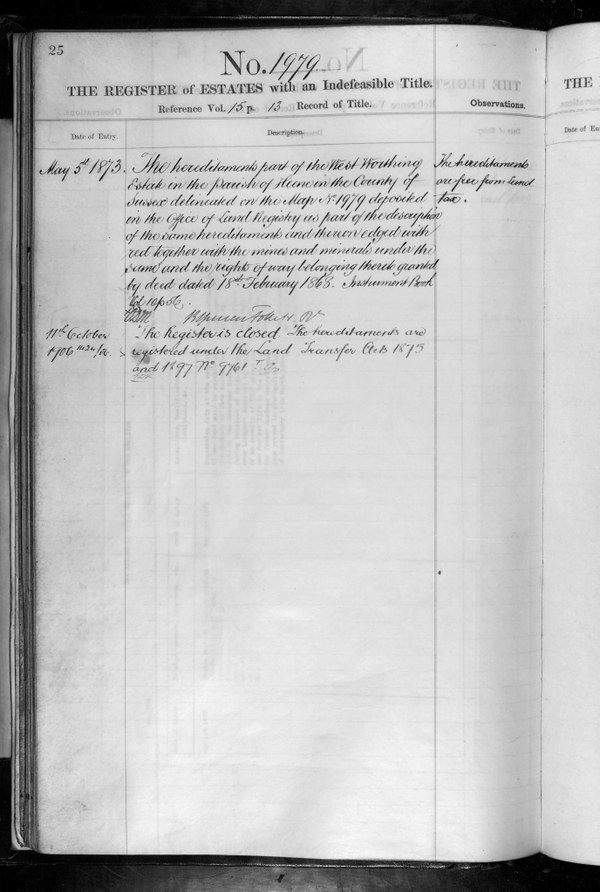 25
No. 1979
THE REGISTER of ESTATES with an Indefeasible Title.
Reference Vol. 15 p. 13 Record of Title.
Observations.
Date of Entry.
Description.
May 5th 1873.
The hereditaments part of the West Worthing
Estate in the Parish of Heene in the County of
Sussex delineated on the Map No. 1979 deposited
in the Office of Land Registry as part of the description
of the same hereditaments and thereon edged with
red together with the mines and minerals under the
same and the rights of way belonging thereto granted
by deed dated 18th February 1868. Instrument Book
The hereditaments
are free from Land
tax.
11th October
1906
The Register is closed The hereditaments are
registered under the Land Transfer Acts 1875
and 1897 No. 9761
THE
Date of En